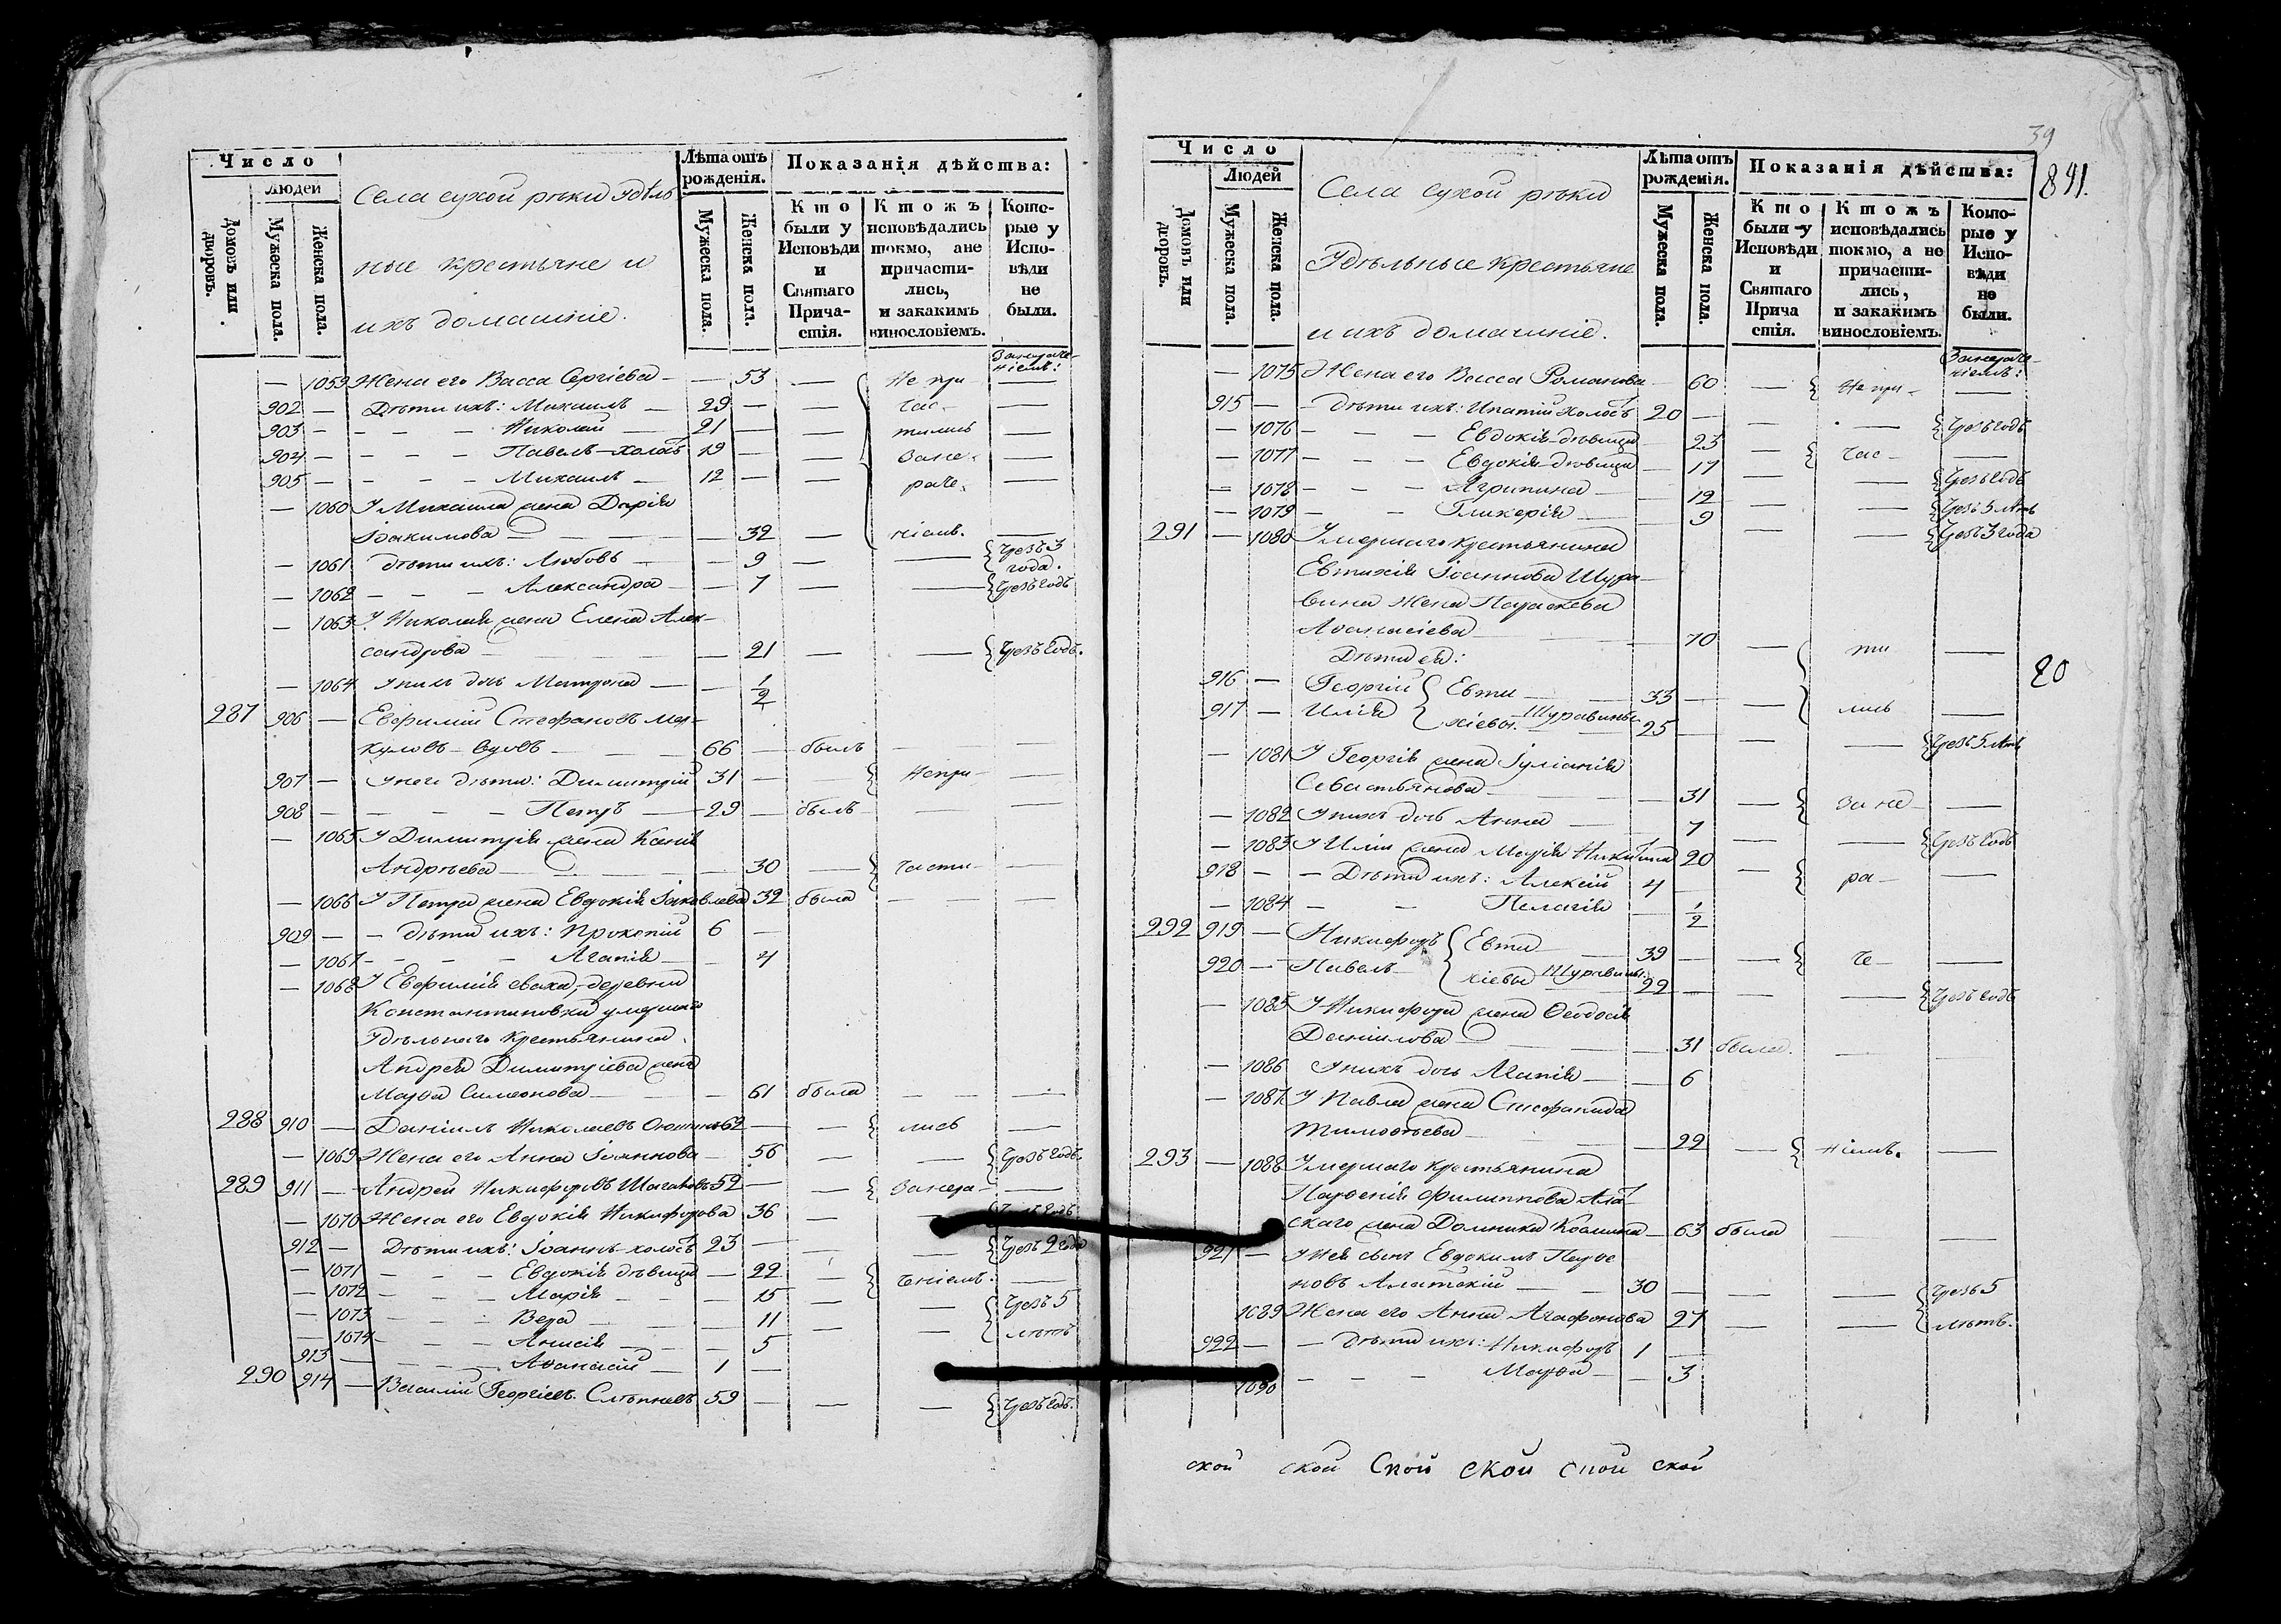 Число
Людей
Домовъ или дворовъ.
Мужеска пола.
Женска пола.
Села сухой рѣки удѣль
ные крестьяне и
ихъ домашніе.
Лѣта отъ рожденія.
Мужеска пола.
Женска пола.
Показанія дѣйства:
Кто были у Исповѣди и Святаго Прича-стія.
Ктожъ исповѣдались токмо, ане причасти-лись, и закакимъ винословіемъ.
Кото-рые у Испо-вѣди не были.
— 1059 Жена его Васса Сергіева — — 53 — Не при —
902 — Дѣти ихъ: Михаилъ — 29 — — час- —
903 — — — — Николай 21 — — тились —
904 — — — — Павелъ-холостъ 19 — — Зане- —
905 — — — — Михаилъ — 12 — — раче- —
— 1060 У Михаила жена Дарія
Іоакимова — 32 — ніемъ. —
— 1061 Дѣти ихъ: Любовь — — 9 — — Чрезъ 3 года.
— 1062 — — — Александра — — 7 — — Чрезъ годъ
— 1063 У Николая жена Елена Алек-
сандрова — — 21 — — Чрезъ годъ.
— 1064 У нихъ дочь Матрона — — 1/2
287 906 — Евфимій Стефановъ Мер-
куловъ-вдовъ — 66 — былъ — —
907 — У него дѣти: Димитрій 31 — — Непри- —
908 — — — — Петръ — 29 — былъ — —
— 1065 У Димитрія жена Ксенія
Андрѣева — — 30 — части- —
— 1066 У Петра жена Евдокія Іаковлева 32 была — —
909 — — Дѣти ихъ: Прокопій 6 —
— 1067 — — — Агапія — — 4
— 1068 У Евфимія сваха, деревни
Константиновки умершаго
Удѣльнаго Крестьянина
Андрея Димитріева жена
Марѳа Симеонова — — 61 была — —
288 910 — Даніилъ Николаевъ 62 — — лись —
— 1069 Жена его Анна Іоаннова — 56 — — Чрезъ годъ.
289 911 — Андрей Никифоровъ 52 — — Занера- —
— 1070 Жена его Евдокія Никифорова 36 — —
912 — Дѣти ихъ: Іоаннъ-холостъ 23 — — — Чрезъ 2 года
— 1071 — — — Евдокія дѣвица — 22 — ченіемъ. —
— 1072 — — — Марія — — — 15 — — Чрезъ 5
— 1073 — — — Вера — 11 — — лѣтъ
— 1074 — — — Анисія — — 5
913 — — — — Аѳанасій — 1 —
290 914 — Василій Георгіевъ 59 — — — Чрезъ годъ.
39
841.
Число
Людей
Домовъ или дворовъ.
Мужеска пола.
Женска пола.
Села сухой рѣки
Удѣльные крестьяне
и ихъ домашніе.
Лѣта отъ рожденія.
Мужеска пола.
Женска пола.
Показанія дѣйства:
Кто были у Исповѣди и Святаго Прича стія.
Ктожъ исповѣдались токмо, а не причасти-лись, и закакимъ винословіемъ.
Кото-рые у Испо-вѣди не были.
— 1075 Жена его Васса Романова 60 — Не при- —
915 — — Дѣти ихъ: Ипатій холостъ 20 — — — Чрезъ годъ
— 1076 — — — Евдокія-дѣвица 23 — час- —
— 1077 — — — Евдокія-дѣвица — 17 — — Чрезъ годъ
— 1078 — — — Агрипина — — 12 — — Чрезъ 5 лѣтъ
— 1079 — — Гликерія — 9 — — Чрезъ 3 года
291 — 1080 Умершаго Крестьянина
Евтихія Іоаннова Щура-
вина Жена Параскева
Аѳанасіева — 70 — ти —
Дѣти ея:
916 — Георгій Евти 33 — — лись —
917 — Илія хіевы Щуравины 25 — — — Чрезъ 5 лѣтъ
— 1081 У Георгія жена Іуліанія
Севастьянова — — 31 — за не —
— 1082 У нихъ дочь Анна — 7 — — Чрезъ годъ
— 1083 У Иліи жена Марія Никитина 20 — ра- —
918 — — Дѣти ихъ: Алексій 4 —
— 1084 — — Пелагія — 1/2
292 919 — Никифоръ Евти 39 — — че- —
920 — Павелъ хіевы Щуравины 22 — — — Чрезъ годъ
— 1085 У Никифора жена Ѳеодосія
Даніилова — — 31 была. — —
— 1086 У нихъ дочь Агапія — — 6
— 1087 У Павла жена Стефанида
Тимоѳѣева — 22 — ніемъ. —
293 — 1088 Умершаго Крестьянина
Парѳенія Филиппова Алат-
скаго жена Домника Козмина — 63 была — —
921 — У нея сынъ Евдокимъ Парѳе
новъ Алатскій — 30 — — — Чрезъ 5
1089 Жена его Анна Агафонова 27 — — лѣтъ.
922 — — Дѣти ихъ: Никифоръ 1 —
1090 — — — Марѳа — — 3
20
ской ской Ской ской ской ской